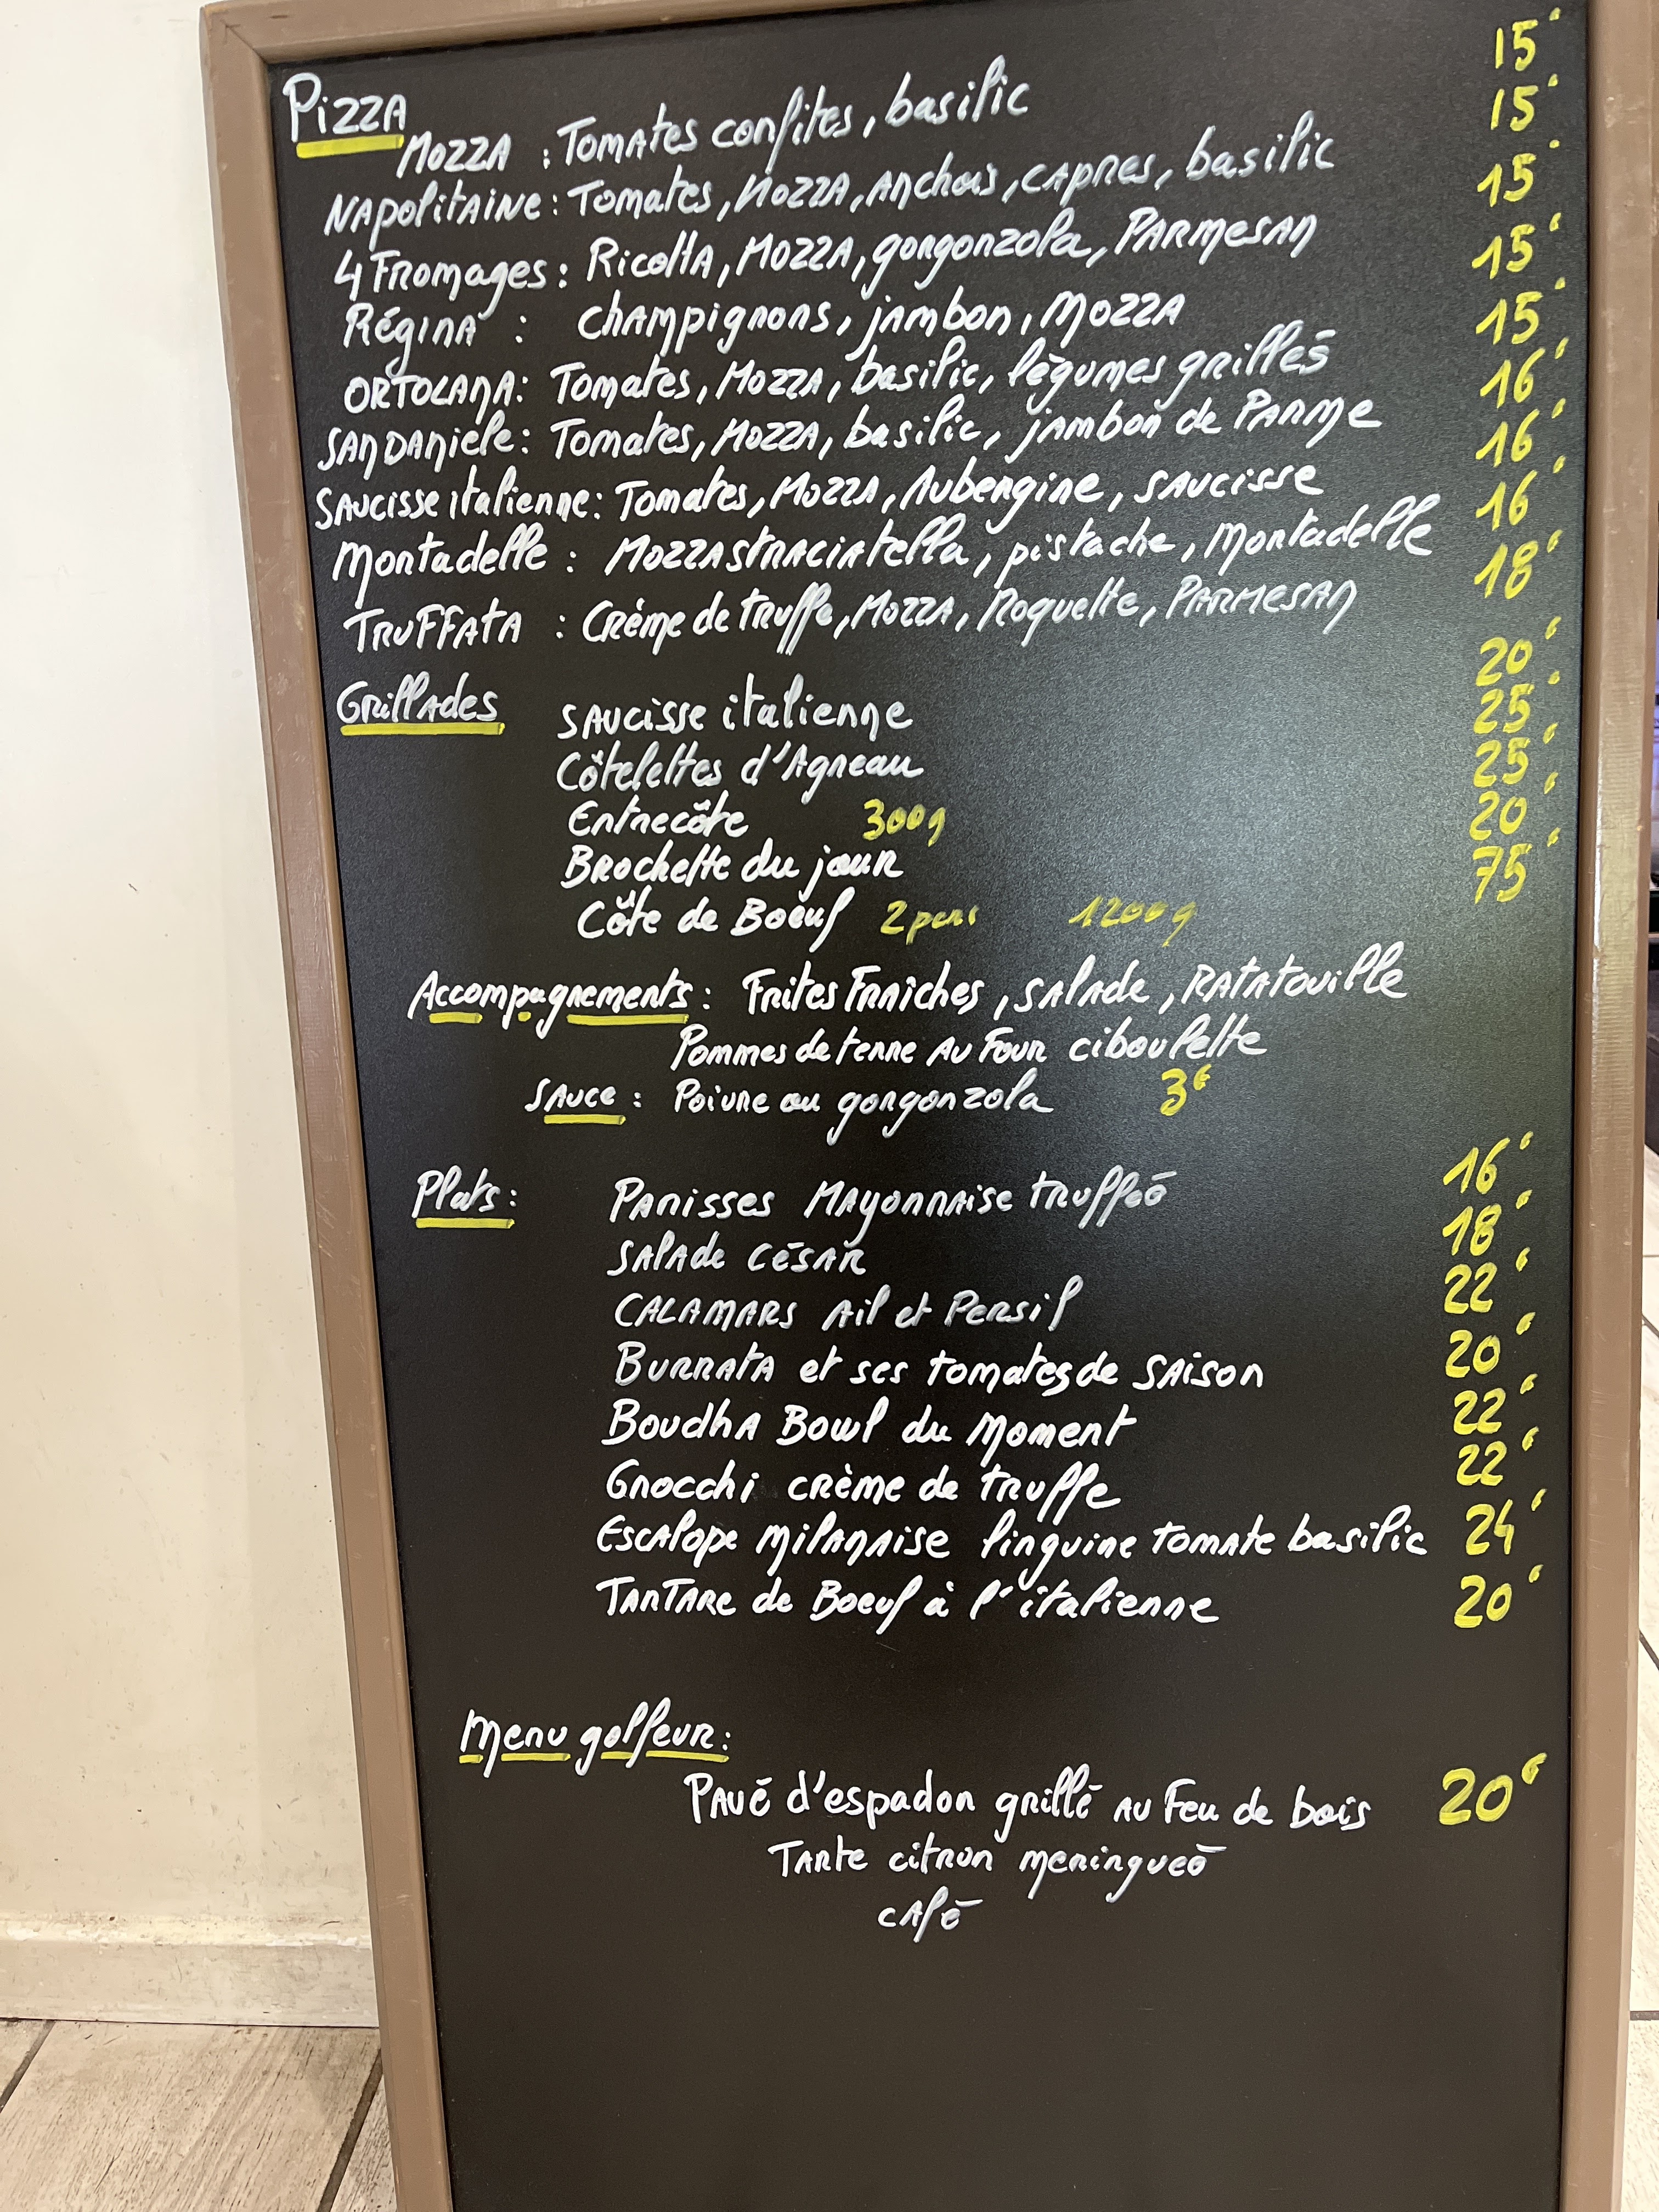 Pizza
Mozza : Tomates confites, basilic 15€
Napolitaine : Tomates, Mozza, Anchois, capres, basilic 15€
4 Fromages : Ricotta, Mozza, gorgonzola, Parmesan 15€
Régina : champignons, jambon, Mozza 15€
Ortolana : Tomates, Mozza, basilic, légumes grillés 15€
San Daniele : Tomates, Mozza, basilic, jambon de Parme 16€
Saucisse italienne : Tomates, Mozza, Aubergine, saucisse 16€
Mortadelle : Mozza straciatella, pistache, Mortadelle 16€
Truffata : Crème de truffe, Mozza, Roquette, Parmesan 18€
Grillades Saucisse italienne 20€
Côtelettes d'Agneau 25€
Entrecôte 300g 25€
Brochette du jour 20€
Côte de Boeuf 2 pers 1200g 75€
Accompagnements : Frites Fraiches, salade, Ratatouille
Pommes de terre au Four ciboulette
Sauce : Poivre ou gorgonzola 3€
Plats : Panisses Mayonnaise truffée 16€
Salade César 18€
Calamars Ail et Persil 22€
Burrata et ses tomates de saison 20€
Boudha Bowl du Moment 22€
Gnocchi crème de truffe 22€
Escalope milanaise linguine tomate basilic 24€
Tartare de Boeuf à l'italienne 20€
Menu golfeur :
Pavé d'espadon grillé au Feu de bois 20€
Tarte citron meringueé
café